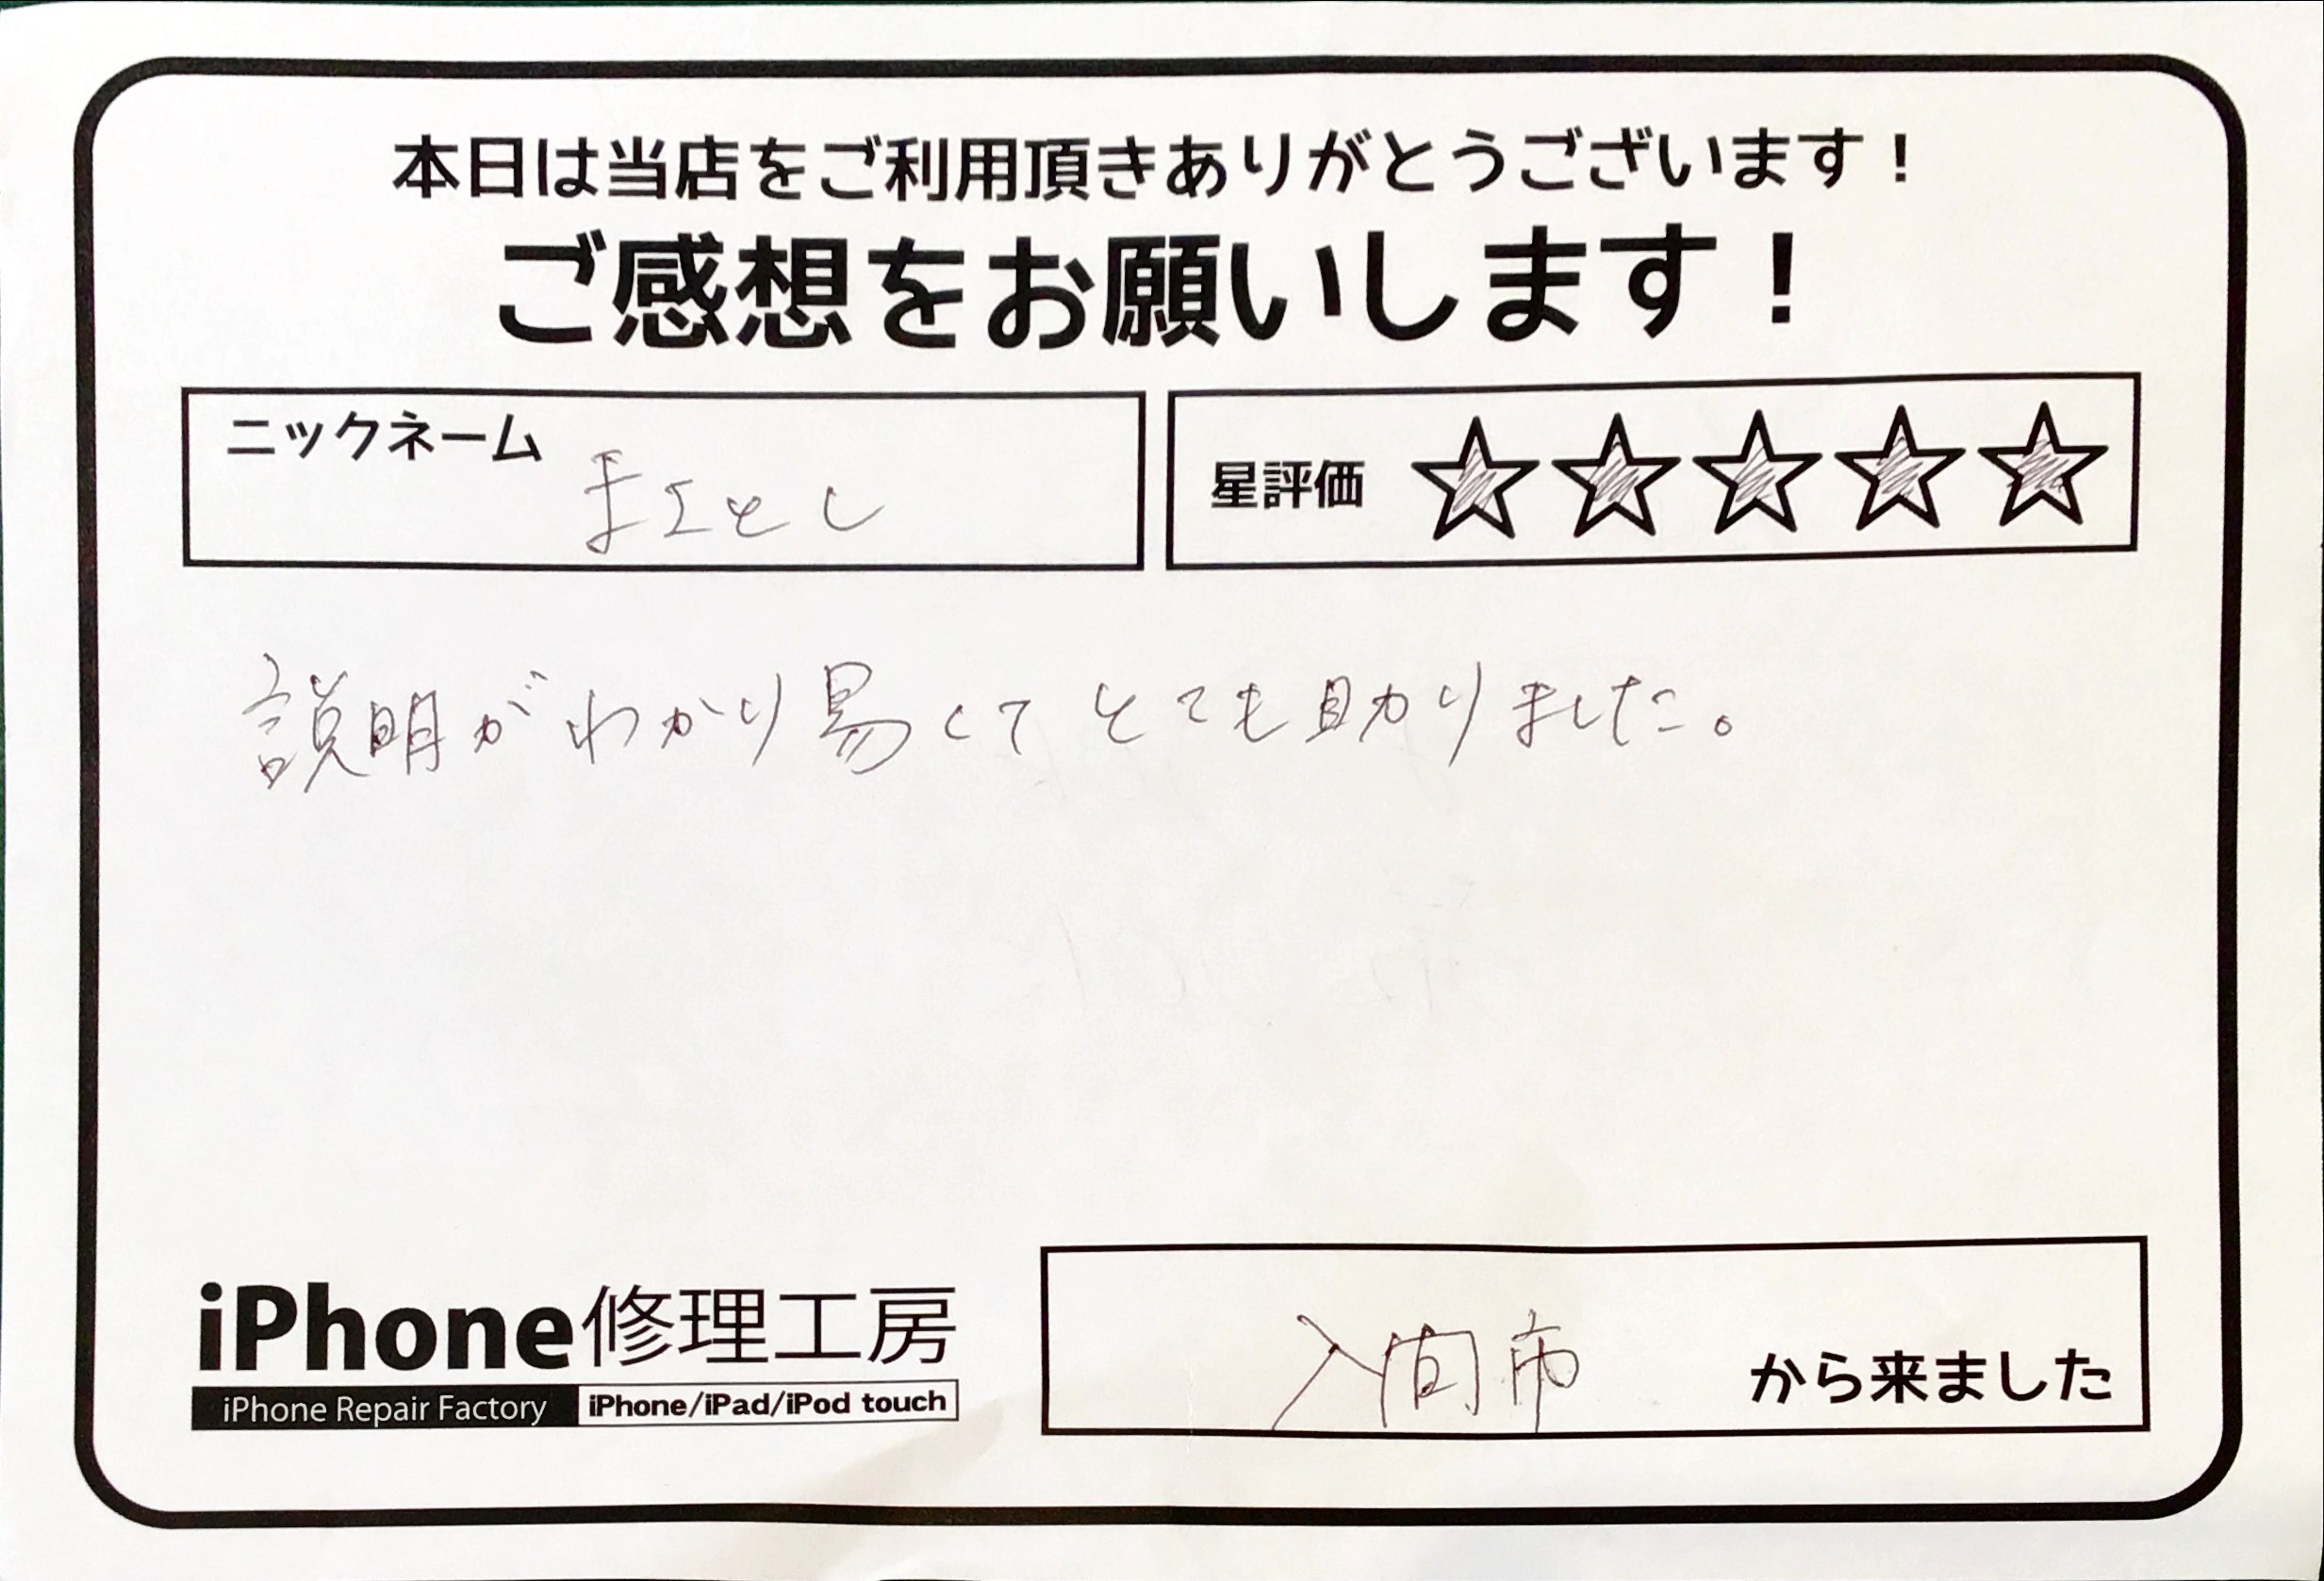 本日は当店をご利用頂きありがとうございます！
ご感想をお願いします！
ニックネーム
星評価 ☆☆☆☆☆
説明がわかり易くてとても助かりました。
iPhone修理工房
iPhone Repair Factory iPhone/iPad/iPod touch
入間市 から来ました